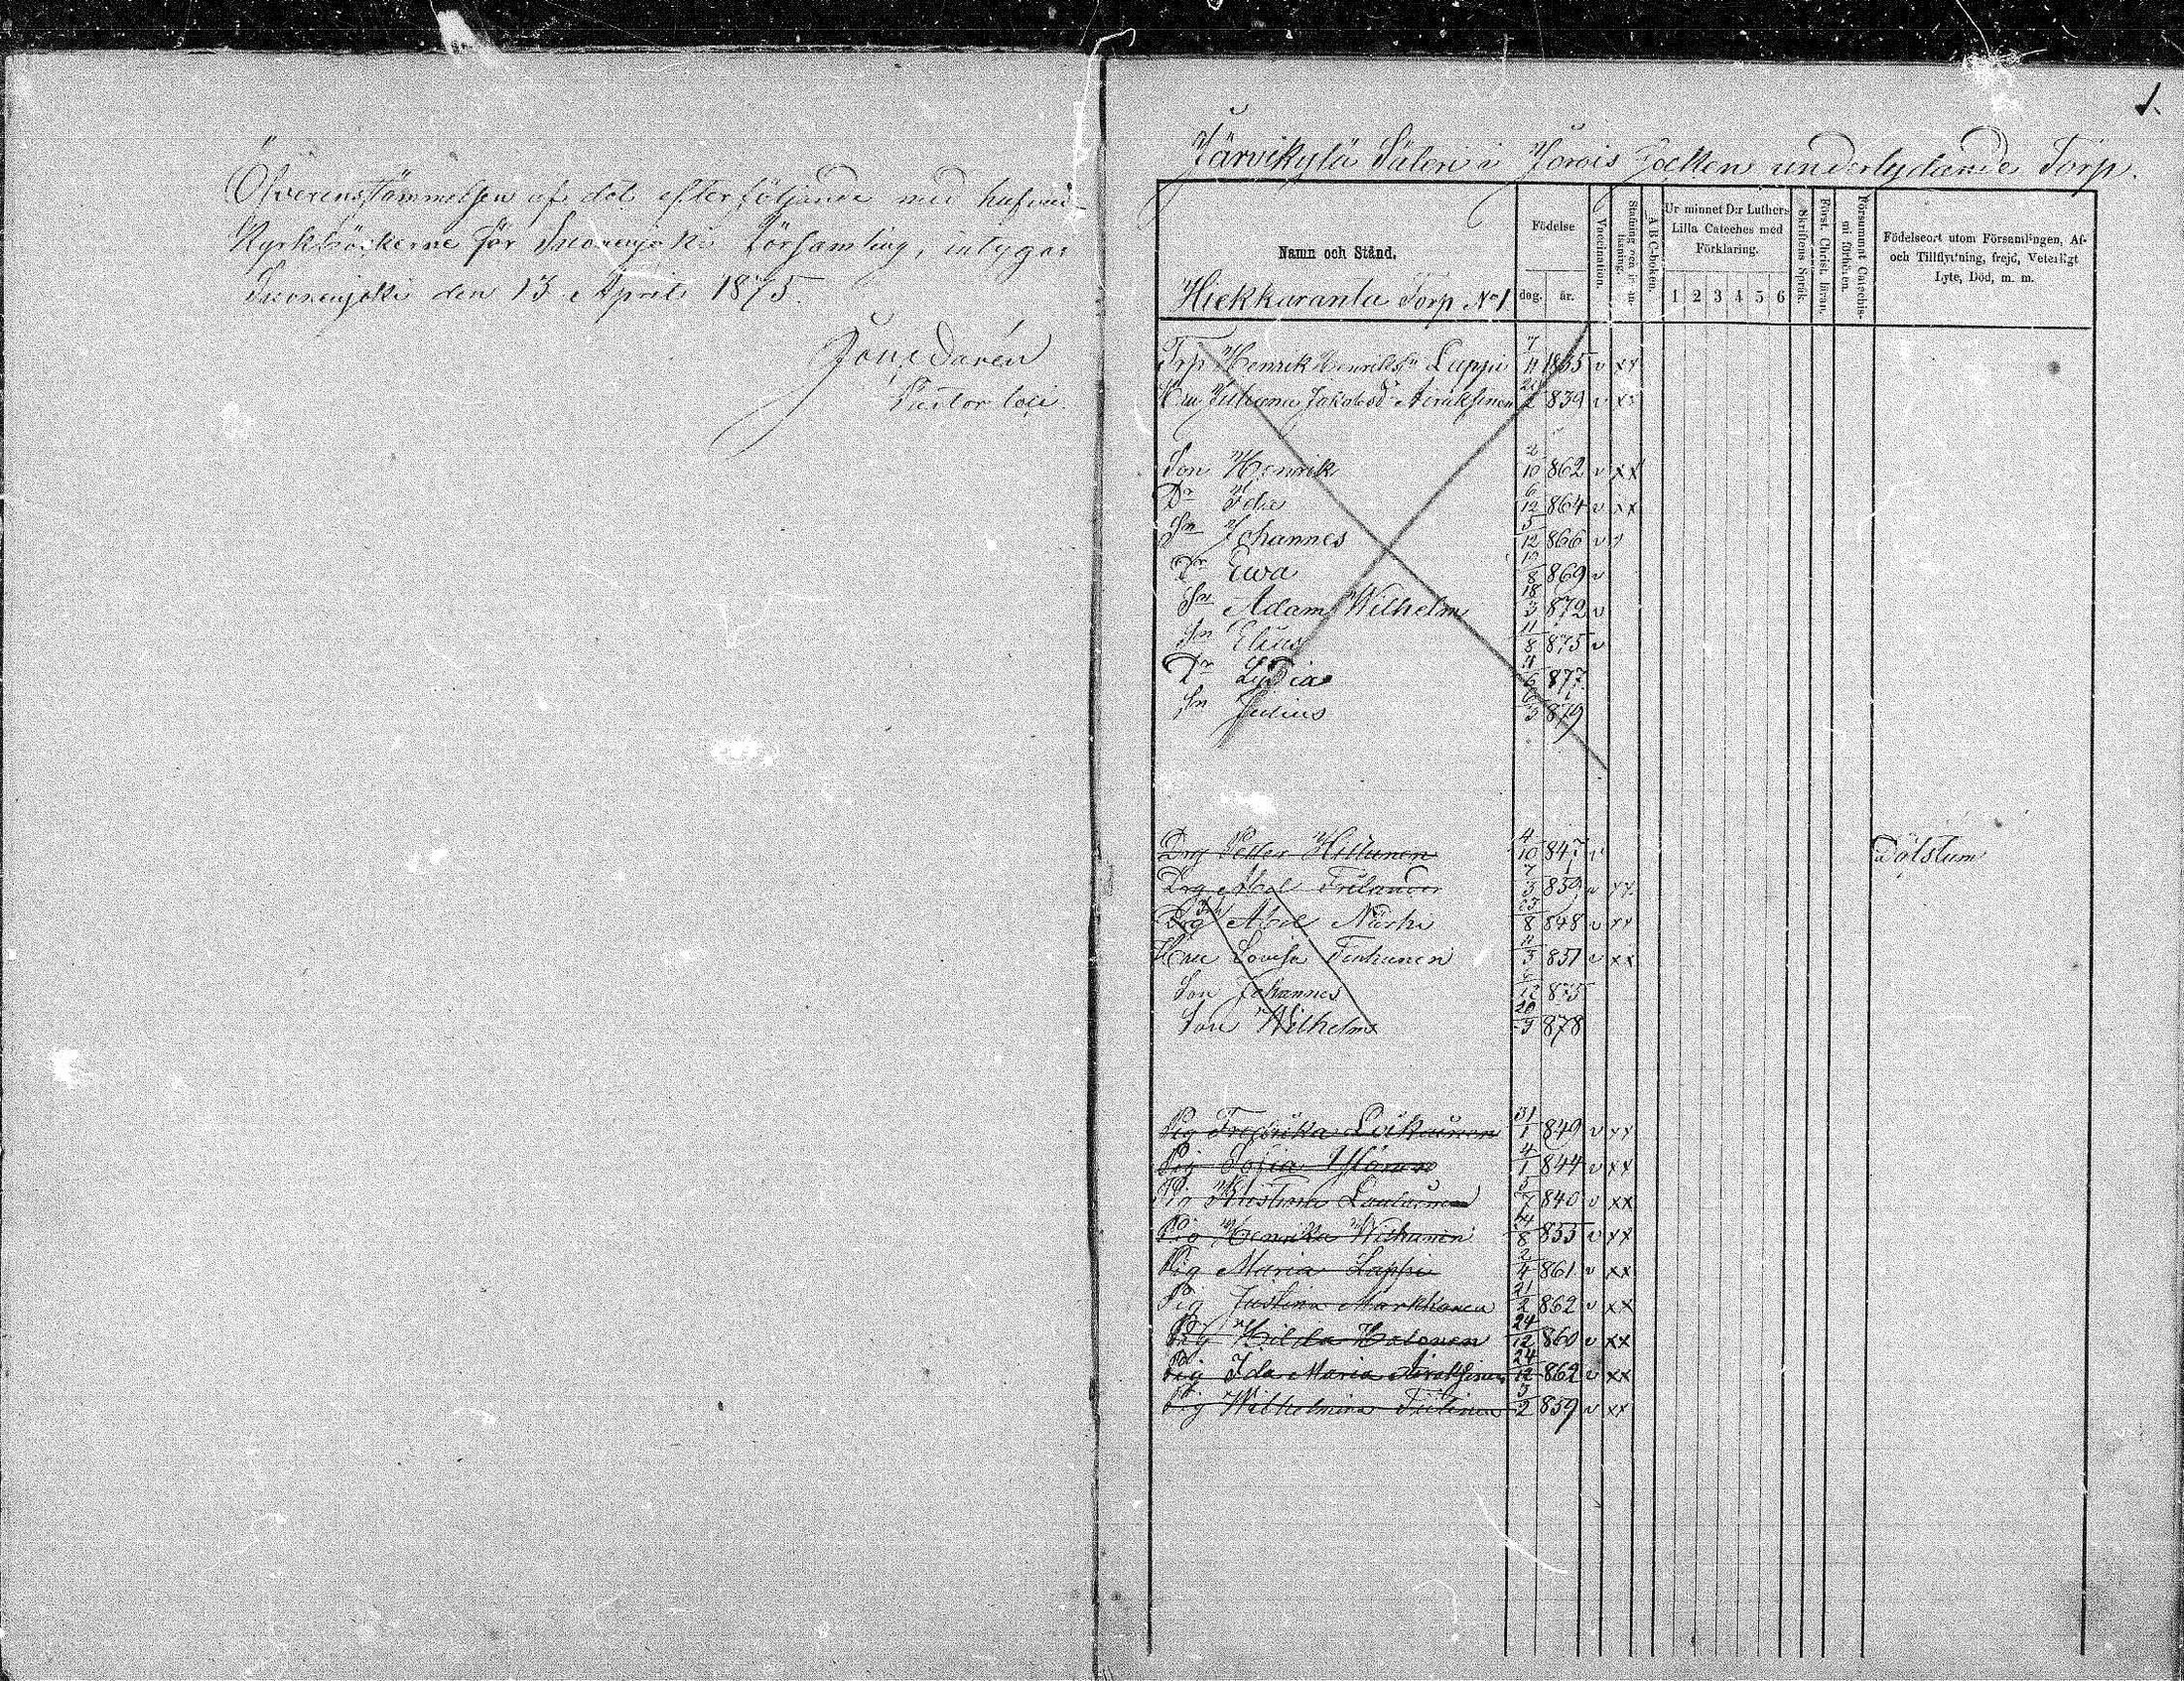 Öfverensstämmelsen af det efterföljande med hufvud-
Kyrkböckerne för Suonenjoki Församling, intygar
Suonenjoki den 13 April 1875.
Pastor loci.
1.
Järvikylä Säteri i Jorois Socken underlydande Torp.
Namn och Stånd.
Hiekkaranta Torp No 1.
Födelse
dag. år.
Vaccination.
A B C-boken.
Ur minnet D:r Luthers Lilla Cateches med Förklaring.
1 2 3 4 5 6
Skriftens Språk.
Först. Christ. läran.
Försummat Catechis-mi förhören.
Födelseort utom Församlingen, Af- och Tillflyttning, frejd, Veterligt Lyte, Död, m. m.
Trp Henrik Henriksn Lappi 7/11 1835 v xx
Hu Juliana Jakobsdr Airaksinen 839 v xx
Son Henrik 2/10 862 v xx
Dr Ida 6/12 864 v xx
Sn Johannes 5/12 866 v
Dr Ewa 869 v
Sn Adam Wilhelm 18/3 872 v
Sn Elias 11/8 875 v
Dr Lydia 877
Sn Julius 879
Drg Petter Hiltunen 4/10 847 v Döfstum
Drg Abel Frilander 7/3 859 v xx
Drg Abel Närhi 8 848 v xx
Hu Lovisa Tiihonen 11/3 851 v xx
Son Johannes 12 875
Son Wilhelm 20/3 878
Pig Fredrika Loikainen 31/1 849 v xx
Pig Sofia 4/1 844 v xx
Pig Kristina Lautainen 5/7 840 v xx
Pig Henrika Wihanin 8 855 v xx
Pig Maria Lappi 2/4 861 v xx
Pig Justina Markkanen 21/2 862 v xx
Pig Hilda Halonen 24/12 860 v xx
Pig Ida Maria Airaksinen 24/12 862 v xx
Pig Wilhelmina 3/2 859 v xx